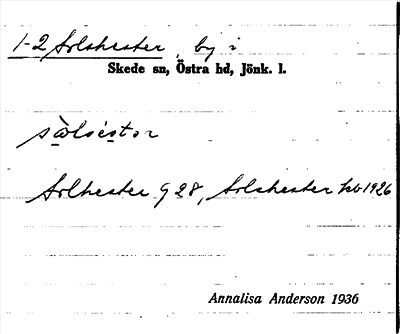 1-2 Solshester, by i
Skede sn, Östra hd, Jönk. l.
Solhester G 28, Solshester kb 1926
Annalisa Anderson 1936